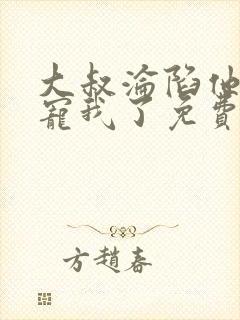 大叔淪陷他
寵我了免費
方趙春